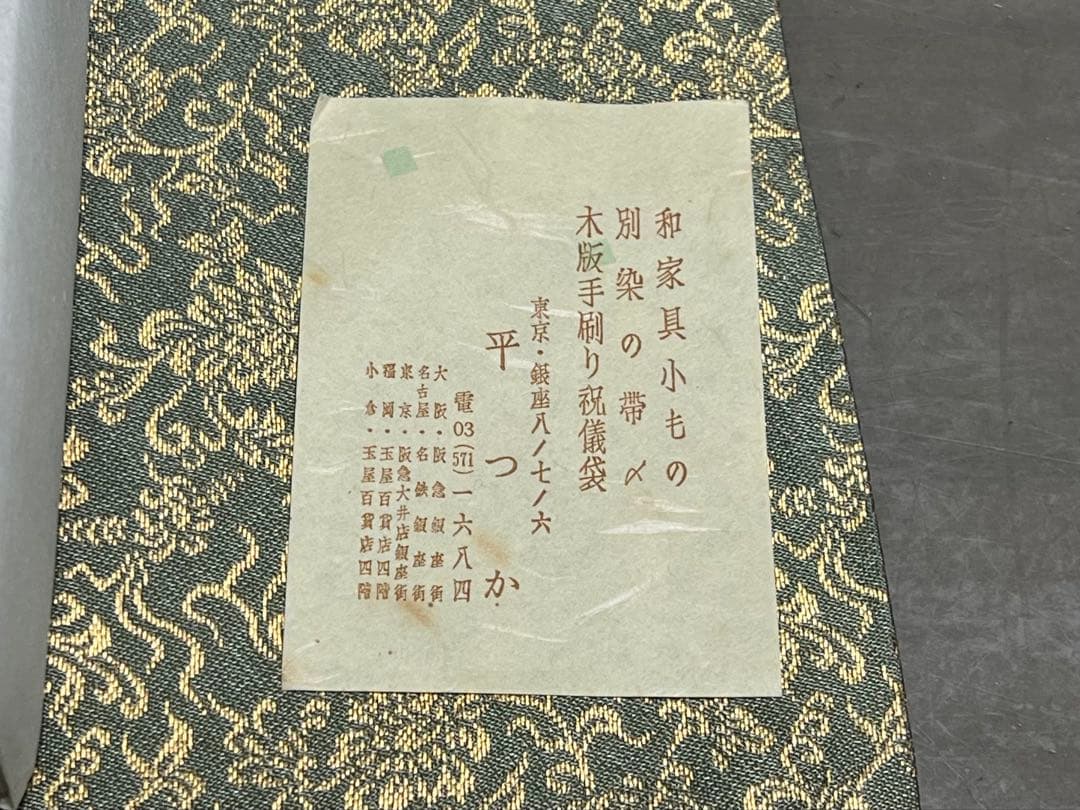 和家具小もの
別染の帯〆
木版手刷り祝儀袋
東京・銀座八ノ七ノ六
平つか
電03(571)一六八四
大阪・阪急銀座街
名古屋・名鉄銀座街
東京・阪急大井店銀座街
福岡・玉屋百貨店四階
小倉・玉屋百貨店四階